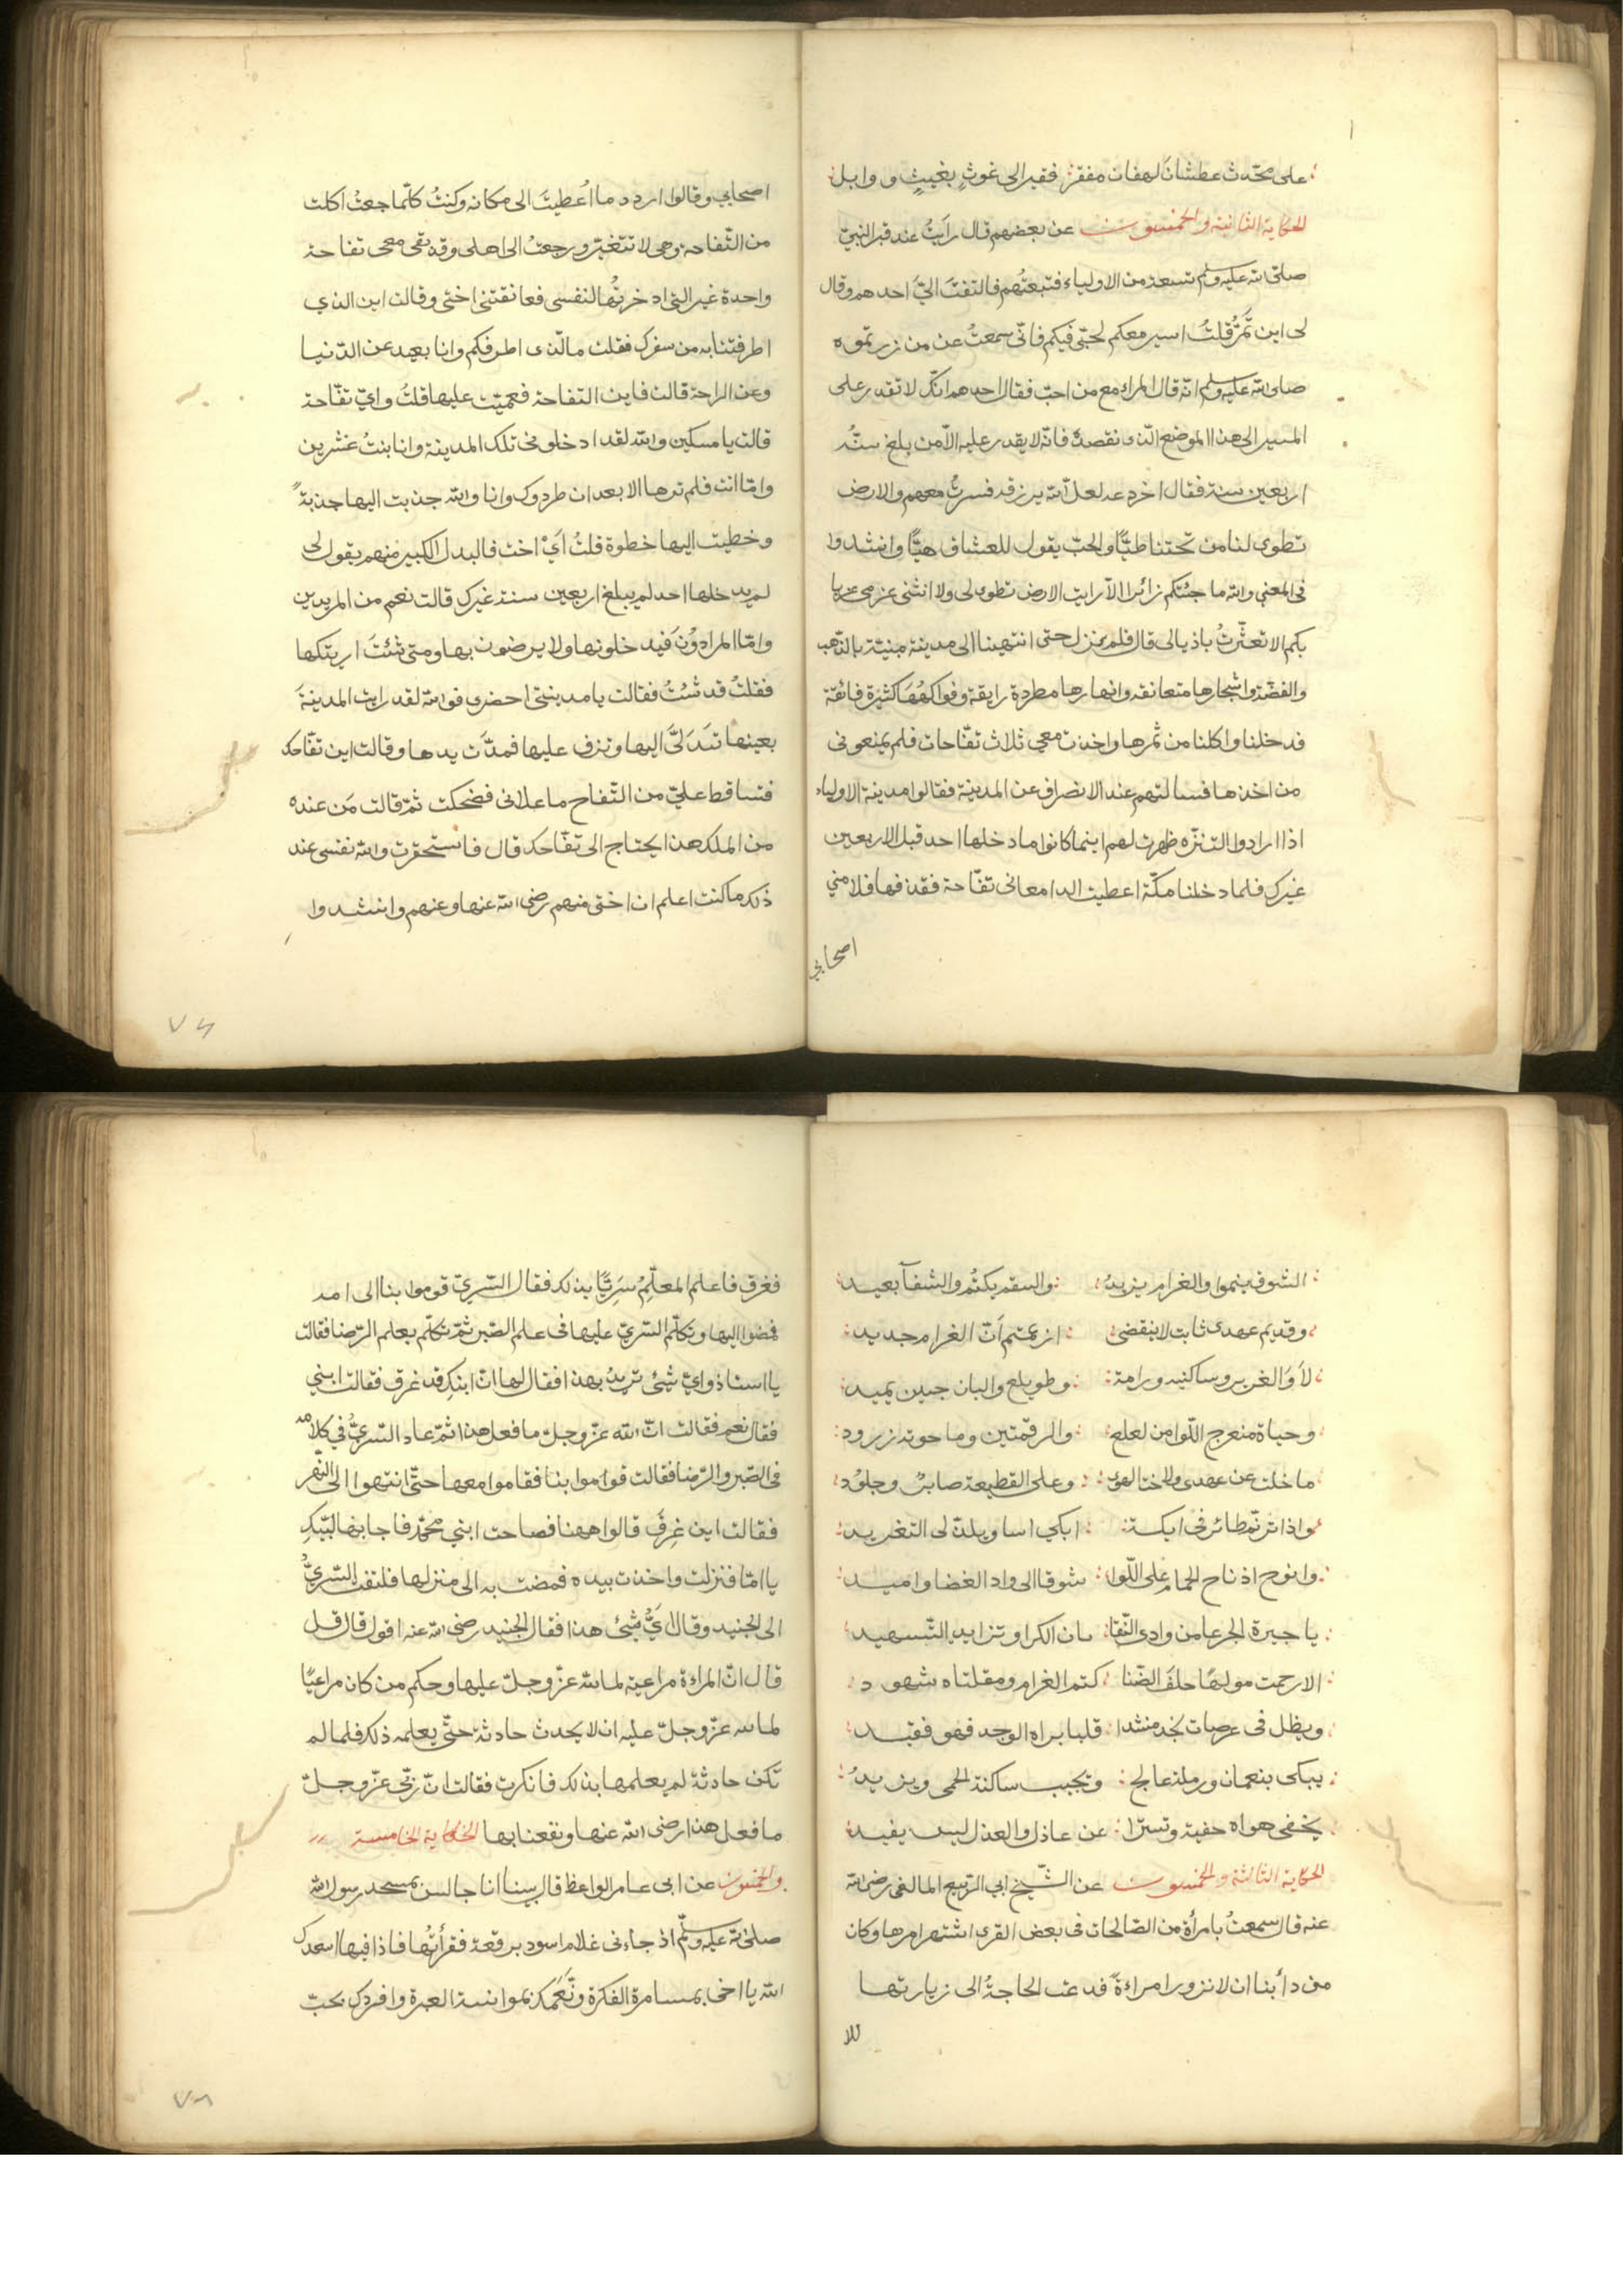 على محدث عطشان لهفان مفقر فقير الى غوث بغيث ووابل
الحكاية الثانية والخمسون عن بعضهم قال رايت عند قبر النبي
صلى الله عليه وسلم تسعة من الاولياء فتبعتهم فالتفت الي احدهم وقال
لى اين تمر قلت اسير معكم لحبى فيكم فانى سمعت عن من زرتموه
صلى الله عليه وسلم انه قال المراء مع من احب فقال احدهم انك لا تقدر على
المسير الى هذا الموضع الذى نقصده فانه لا يقدر عليه الا من بلغ سنه
اربعين سنة فقال اخر دعه لعل الله يرزقه فسرت معهم والارض
تطوى لنا من تحتنا طيا والحب يقول للعشاق هيا وانشدوا
فى المعنى والله ما جئتكم زائرا الا رايت الارض تطوى لى ولا انثنى عزمى عن
بكم الا تعثرت باذيالى قال فلم نزل حتى انتهينا الى مدينة مبنية بالذهب
والفضة واشجارها متعانقه وانهارها مطردة رايقة وفواكهها كثيرة فائقة
فدخلنا واكلنا من ثمرها واخذت معى ثلاث تفاحات فلم يمنعونى
من اخذها فسالتهم عند الانصراف عن المدينة فقالوا مدينة الاولياء
اذا ارادوا التنزه ظهرت لهم اينما كانوا ما دخلها احد قبل الاربعين
غيرك فلما دخلنا مكة اعطيت الدامعانى تفاحة فقذفها فلامني
اصحابي
اصحابي وقالوا اردد ما اعطيت الى مكانه وكنت كلما جعت اكلت
من التفاحة وهى لا تتغير ورجعت الى اهلى وقد بقى معى تفاحة
واحدة غير التى ادخرتها لنفسى فعانقتنى اختى وقالت اين الذي
اطرفتنا به من سفرك فقلت ما الذى اطرفكم وانا بعيد عن الدنيا
وعن الراحة قالت فاين التفاحة فعميت عليها قلت واي تفاحة
قالت يا مسكين والله لقد ادخلونى تلك المدينة وانا بنت عشرين
واما انت فلم ترها الا بعد ان طردوك وانا والله جذبت اليها جذبة
وخطيت اليها خطوة قلت أي اخت فالبدل الكبير منهم يقول لى
لم يدخلها احد لم يبلغ اربعين سنة غيرك قالت نعم من المريدين
واما المرادون فيدخلونها ولا يرضون بها ومتى شئت اريتكها
فقلت قد شئت فقالت يا مدينتى احضرى فوالله لقد رايت المدينة
بعينها تتدلى اليها وتزف عليها فمدت يدها وقالت اين تفاحك
فتساقط علي من التفاح ما علانى فضحكت ثم قالت من عنده
من الملك هذا يحتاج الى تفاحك قال فاستحقرت والله نفسى عند
ذلك ما كنت اعلم ان اختى منهم رضى الله عنها وعنهم وانشدوا
٧٧
الشوق ينموا والغرام يزيد والسقم يكتم والشفآ بعيد
وقديم عهدى ثابت لا ينقضى ازعمتم أن الغرام جديد
لا والغرير وساكنيه ورامة وطويلع والبان حين يميد
وحياة منعرج اللوا من لعلع والرقمتين وما حوته زرود
ما خلت عن عهدى ولا ختا لهوى وعلى القطيعة صابر وجلود
واذا ترنم طائر فى ايكة ابكي اسا ويلذ لى التغريد
وانوح اذ ناح الحمام على اللوا شوقا الى واد الغضا واميد
يا جيرة الجرعا من وادى النقا بان الكرا وتزايد التسهيد
الا رحمت مولها حلف الضنا كتم الغرام ومقلتاه شهود
ويظل فى عرصات نجد منشدا قلبا براه الوجد فهو فقيد
يبكى بنعمان ورملة عالج ويجيب ساكنة الحمى ويزيد
يخفى هواه خفية وتسترا عن عاذل والعذل ليس يفيد
الحكاية الثالثة والخمسون عن الشيخ ابي الربيع المالقى رضى الله
عنه قال سمعت بامرأة من الصالحات فى بعض القرى اشتهر امرها وكان
من دأبنا ان لا نزور امراءة فدعت الحاجة الى زيارتها
فغرق فاعلم المعلم سريا بذلك فقال السري قوموا بنا الى امه
فمضوا اليها وتكلم السري عليها فى علم الصبر ثم تكلم بعلم الرضا فقالت
يا استاذ واي شىء تريد بهذا فقال لها ان ابنك قد غرق فقالت ابني
فقال نعم فقالت ان الله عز وجل ما فعل هذا ثم عاد السري في كلامه
فى الصبر والرضا فقالت قوموا بنا فقاموا معها حتى انتهوا الى النهر
فقالت اين غرق قالوا ههنا فصاحت ابني محمد فاجابها لبيك
يا اماه فنزلت واخذت بيده فمضت به الى منزلها فلتفت السري
الى الجنيد وقال اي شىء هذا فقال الجنيد رضى الله عنه اقول قال قل
قال ان المراءة مراعية لما لله عز وجل عليها وحكم من كان مراعيا
لما لله عز وجل عليه ان لا يحدث حادثة حتى يعلمه ذلك فلما لم
تكن حادثة لم يعلمها بذلك فانكرت فقالت ان ربى عز وجل
ما فعل هذا رضى الله عنها ونفعنا بها الحكاية الخامسة
والخمسون عن ابى عامر الواعظ قال بينا انا جالس بمسجد رسول الله
صلى الله عليه وسلم اذ جاءنى غلام اسود برقعة فقرأتها فاذا فيها اسعدك
الله يا اخى بمسامرة الفكرة ونعمك بموانسة العبرة وافردك بحب
٧٨